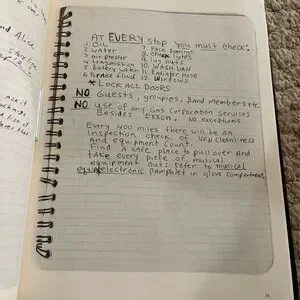 AT EVERY stop you must check:
1. OIL
2. Water
3. Tire pressure
4. transmission
5. Battery water
6. Brake fluid
7. pack Bearings
8. check lights
9. lug nuts
10. WASH VAN
11. Radiator Hose
12. WINDOWS
* LOCK ALL DOORS
NO Guests, groupies, Band members etc.
NO use of Any Gas Corporation Services
Besides EXXON. NO exceptions
Every 400 miles there will be an
Inspection check of VAN cleanliness
And equipment count.
Find A safe place to pull over And
take every piece of musical
equipment out. refer to musical
electronic pamphlet in glove compartment.